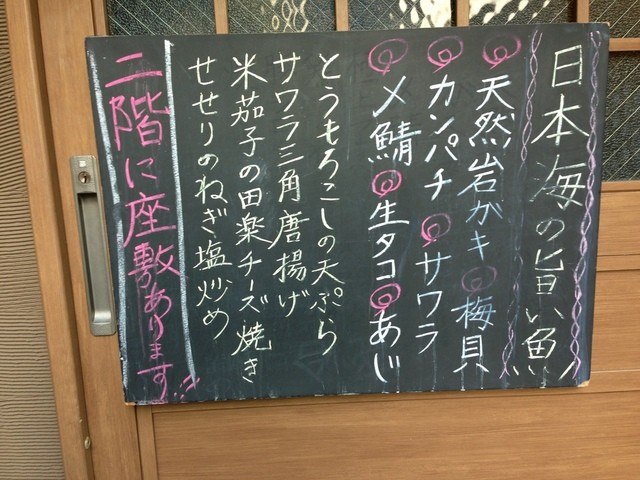 日本海の旨い魚!!
天然岩ガキ 梅貝
カンパチ サワラ
〆鯖 生タコ あじ
とうもろこしの天ぷら
サワラ三角唐揚げ
米茄子の田楽チーズ焼き
せせりのねぎ塩炒め
二階に座敷あります!!